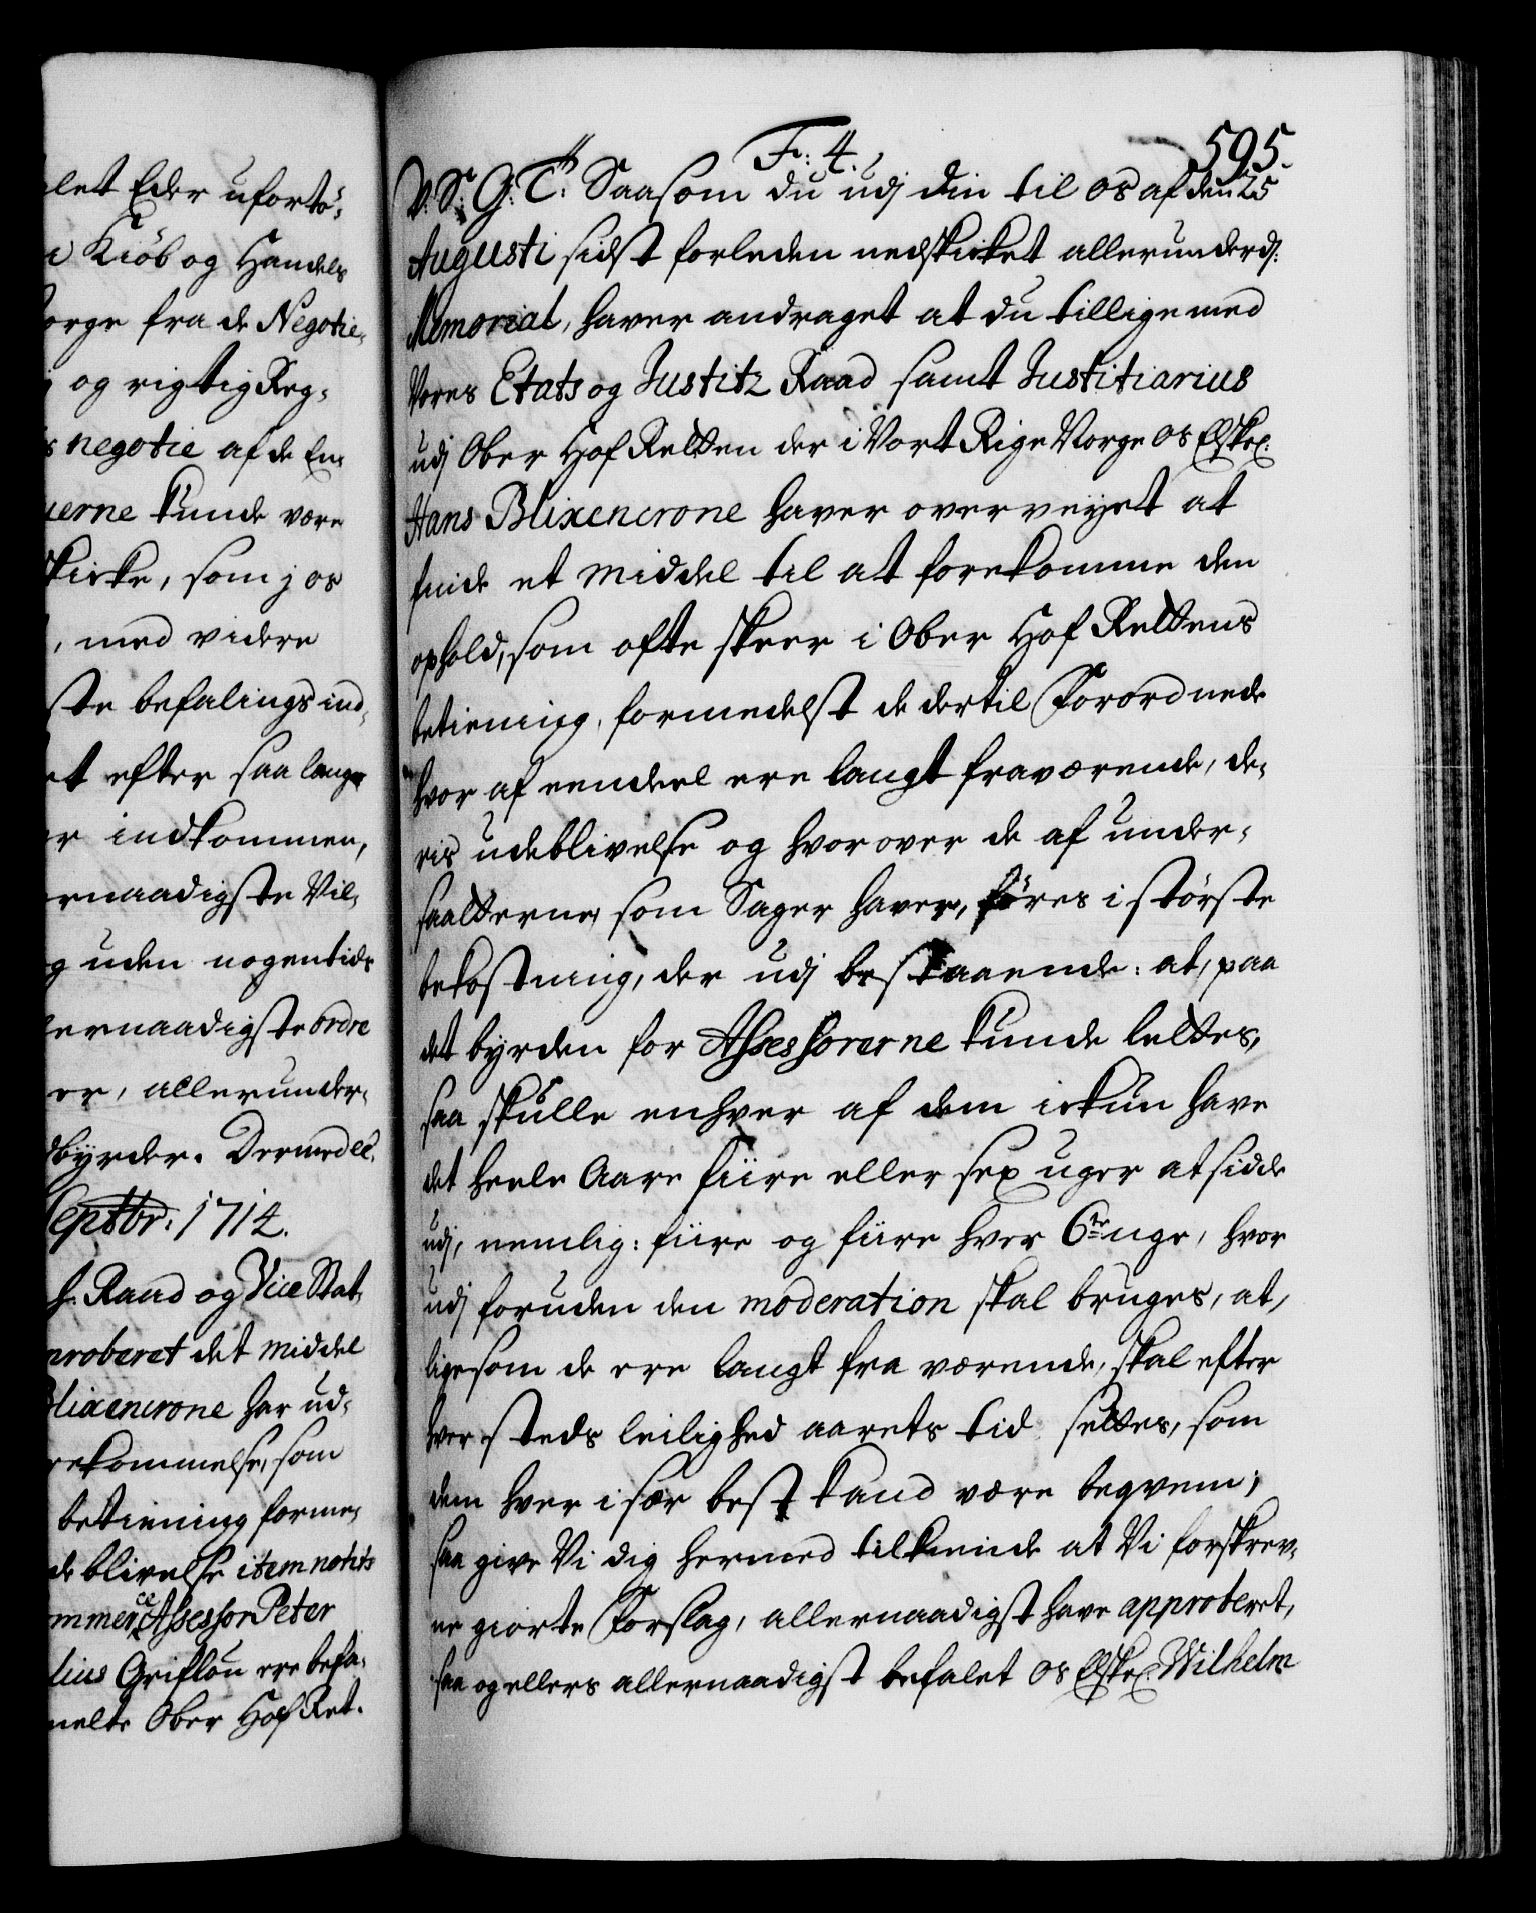 let Eder uforto¨,
i Kiöb og Handels
orge fra de Negotie,
og rigtig Reg,
s negotie af de En,
erne kunde være
skicke, som j os
, med videre
ste befalings ind,
et efter saa lange
er indkommen,
ernaadigste Vil,
g uden nogentids
lernaadigste ordre
er, allerunder,
byrder. Dermed ec.
Septbr: 1714.
h. Raad og Vice Stat,
proberet det middel
Blixencrone har ud,
rekommelse, som
betiening forme,
deblivelse item notits
ommerce Assessor Peter
lius Griflou ere befa,
melte Ober Hof Ret.
F: 4.
595.
V: S: G: T: Saasom du udj din til os af den 25
Augusti sidst forleden nedskicket allerunderd:
Memorial, haver andraget at du tillige med
Vores Etats og Justitz Raad samt Justitiarius
udj Ober Hof Retten der i Vort Rige Norge os Elskel:
Hans Blixencrone haver overveyet at
finde et middel til at forekomme den
ophold, som ofte skeer i Ober Hof Rettens
betiening, formedelst de dertil Forordnede
hvor af eendeel ere langt fraværende, de,
ris udeblivelse og hvorover de af under,
saatterne, som Sager haver, föres i störste
bekostning, der udj bestaaende: at, paa
det byrden for Assessorerne kunde lettes,
saa skulle enhver af dem ickun have
det heele Aare fiire eller sex uger at sidde
udj, nemlig: fiire og fiire hver 6te uge, hvor
udj foruden den moderation skal bruges, at,
ligesom de ere langt fra værende, skal efter
hver steds leilighed aarets tid settes, som
dem hver i sær best kand være beqvem;
saa give Vi dig hermed tilkiende at Vi forskrev,
ne giorte Forslag, allernaadigst have approberet,
saa og ellers allernaadigst befalet os Elskel: Wilhelm